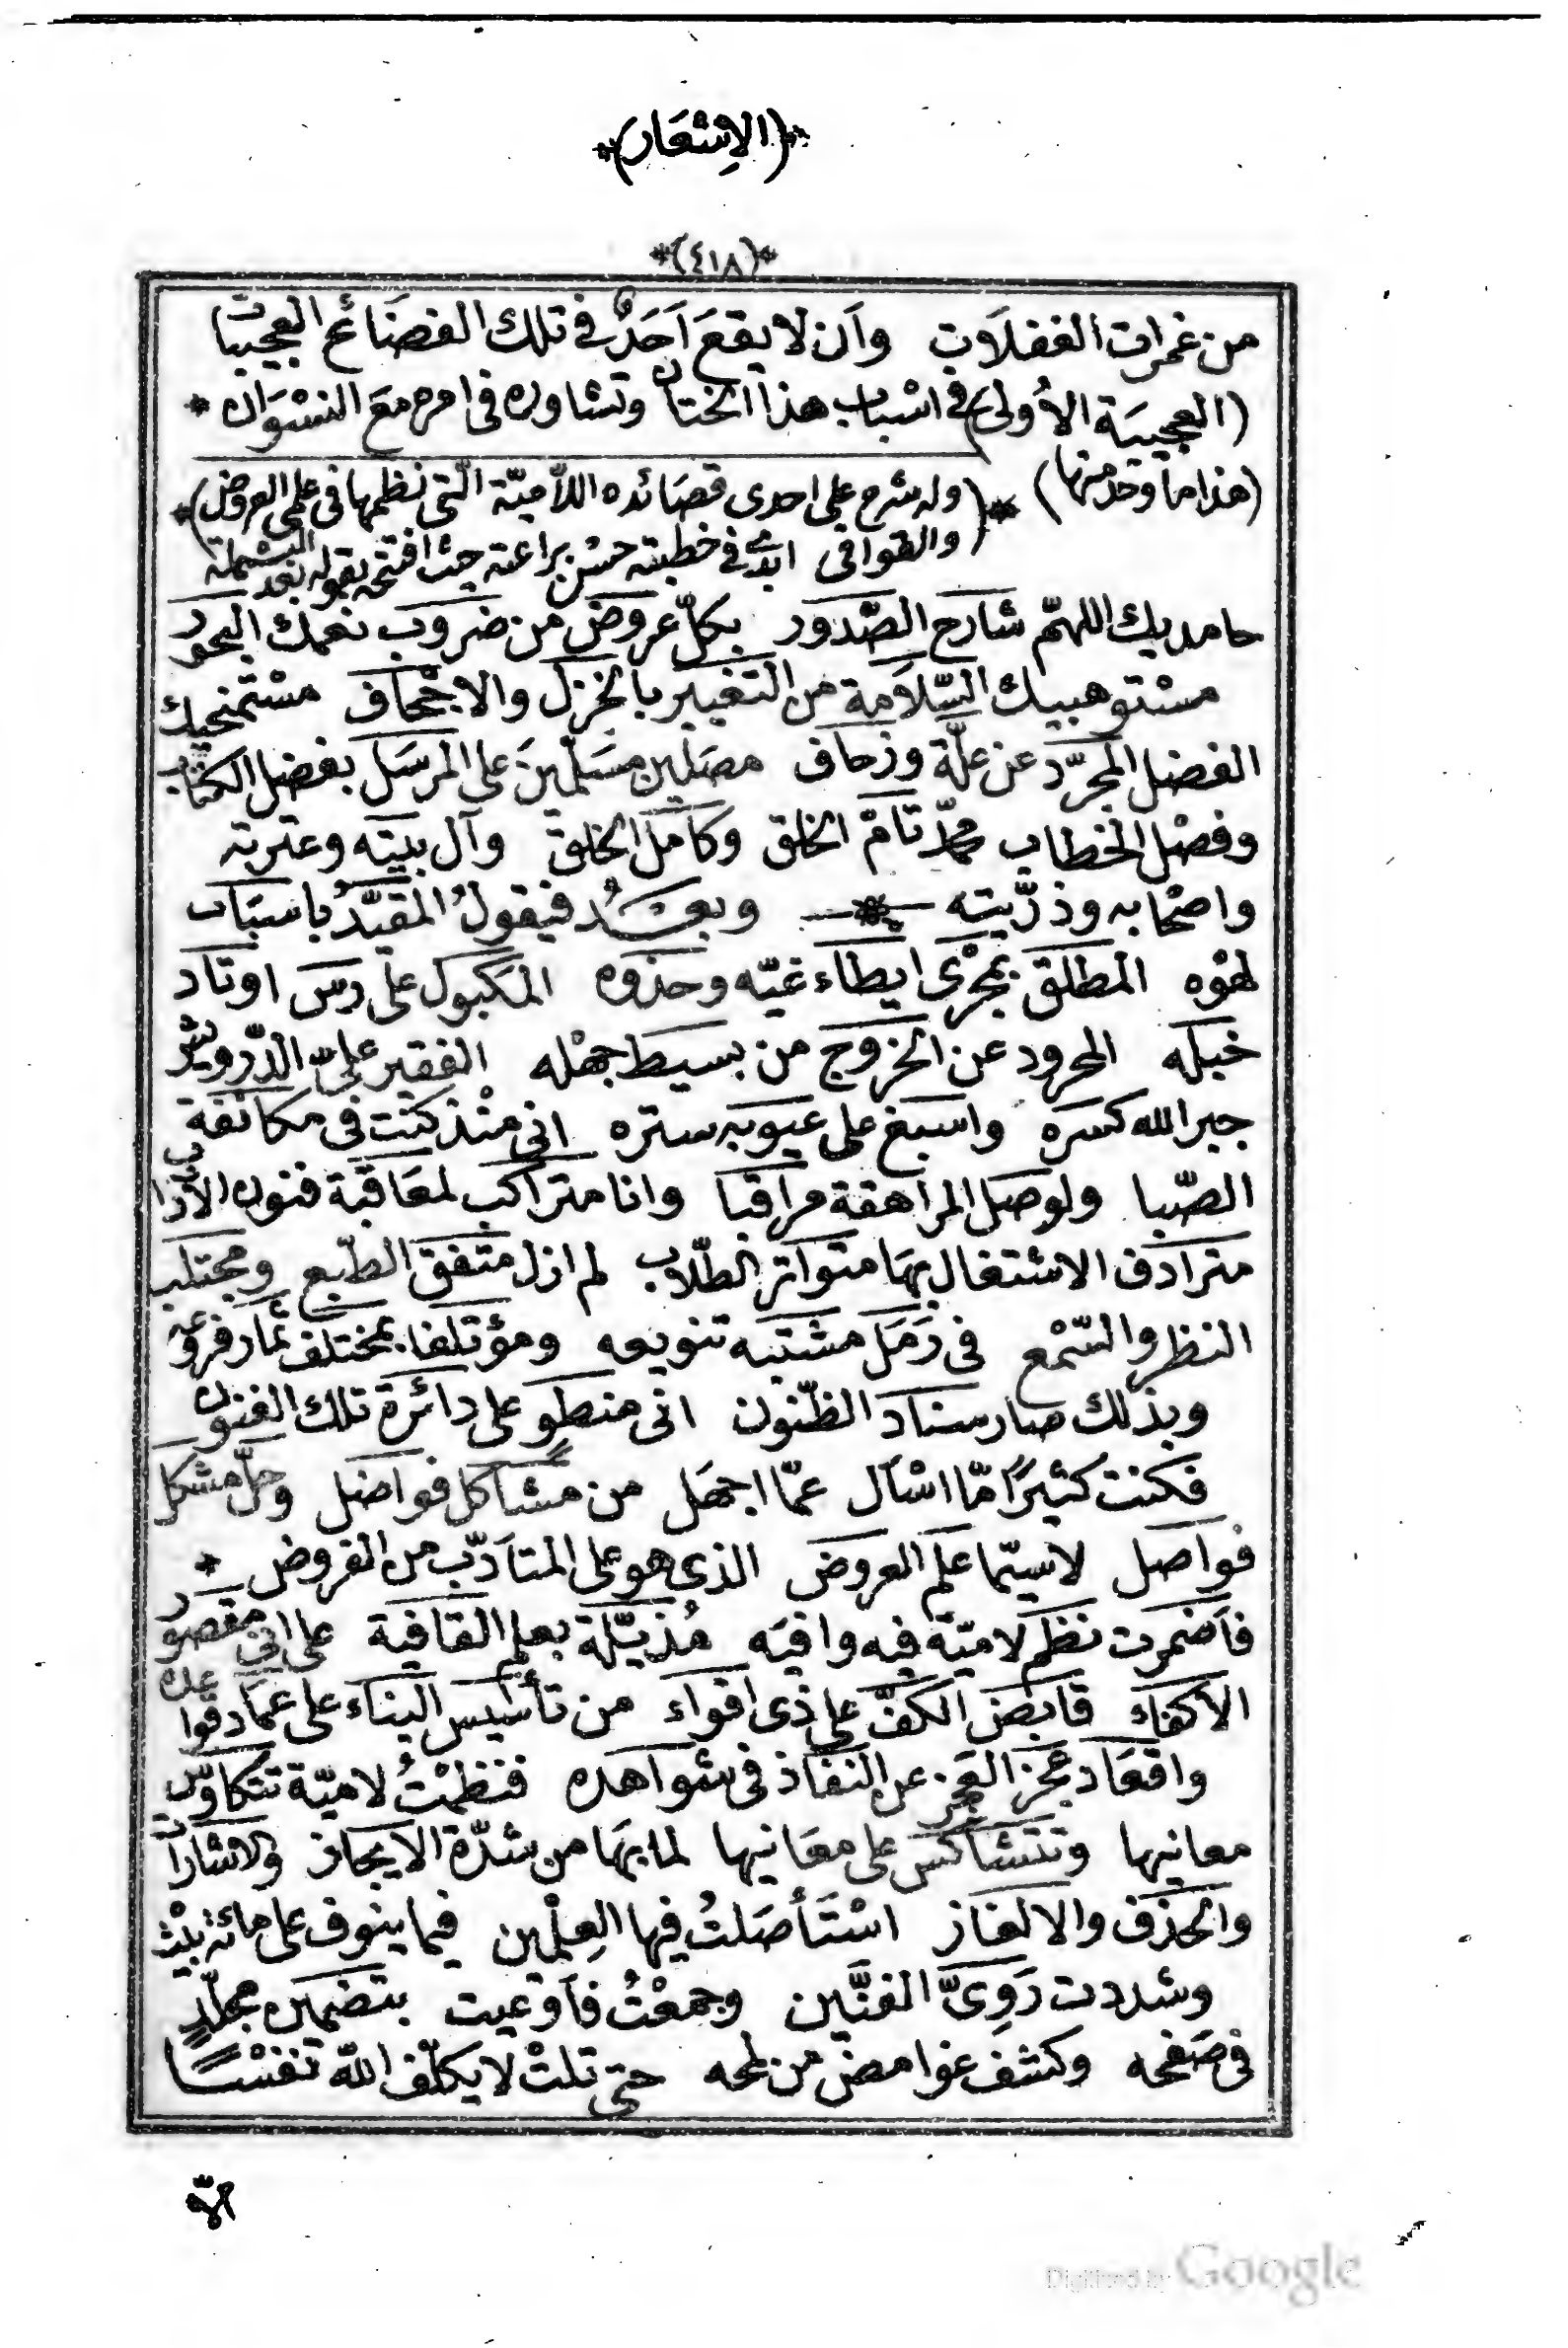 *(الإشعار)*
*(٤١٨)*
من غمرات الغفلات وأن لا يقعَ أحَدٌ في تلك الفضَائح العجيبات
(العجيبَة الأولى) في اسْباب هذا الختان وتشاوره في امره معَ النسْوَان *
(هذا ما وجد منها) * (وله شرح على احدى قصَائده اللاّميّة الّتي نظمها في علمي العروض)*
(والقوافي ابدى في خطبته حسْن براعته حيث افتتحه بقوله بعد البسْملة
حامديك اللهمّ شارح الصّدور بكلّ عروض من ضروب نعمك البحور
مسْتوهبيك السّلامة من التغيير بالخزل والاجْحاف مسْتمنحيك
الفضل المجرّد عن علّة وزحاف مصلين مسَلّمينَ على المرسَل بفضل الكتاب
وفصْل الخطاب محمّد تامّ الخلق وكامل الخلق وآل بيته وعترته
واصْحابه وذرّيته * وبعـد فيقولُ المقيَّدُ باسبَاب
لهْوه المطلق بمجْرى ايطاء غيّه وحذوه المكبول على رسّ اوتاد
خبله المحرود عن الخروج من بسيط جهْله الفقير علىّ الدّرويش
جبر الله كسره واسبغ على عيوبه ستره اني منْذ كنت في مكانفة
الصّبا ولوصل المراهقة مراقبا وانا متراكب لمعَاقبة فنون الآداب
مترادف الاشتغال بهَا متواتر الطلّاب لم ازل متفق الطّبع ومجتلب
النظر والسّمْع في رَمَل مشتبه تنويعه ومؤتلفا بمختلف ثمار فروعه
وبذلك صار سناد الظّنون اني منطوٍ على دائرة تلك الفنون
فكنت كثيرًا مّا اسْأل عمّا اجهَل من مشاكل فواضل وحلّ مشكل
فواصل لاسيّما علم العروض الذي هو على المتأدّب من الفروض *
فأضمرت نظم لاميّة فيه وافيَه مُذيّلة بعلم القافية على اني مقصور
الاكفاء قابض الكفّ على ذى اقواء من تأسيس البناء على عماد قواعده
واقعَاد عجز العَجز عن النفاذ في شواهده فنظمْتُ لاميّة تتكاوس
معانيها وتتشاكس على معَانيها لما بهَا من شدّة الايجاز والاشارات
والحذف والالغاز اسْتَأصَلتُ فيها العِلْمين فيما ينوف على مائة بيْت
وشددت رَوِىَّ الفنَّين وجمعْتُ فأوعيت بتضمين مجلّدٍ
في صَفحه وكشف غوامض من لمحه حتى تلتْ لا يكلّف الله نفسْـًا
الاّ
Digitized by Google